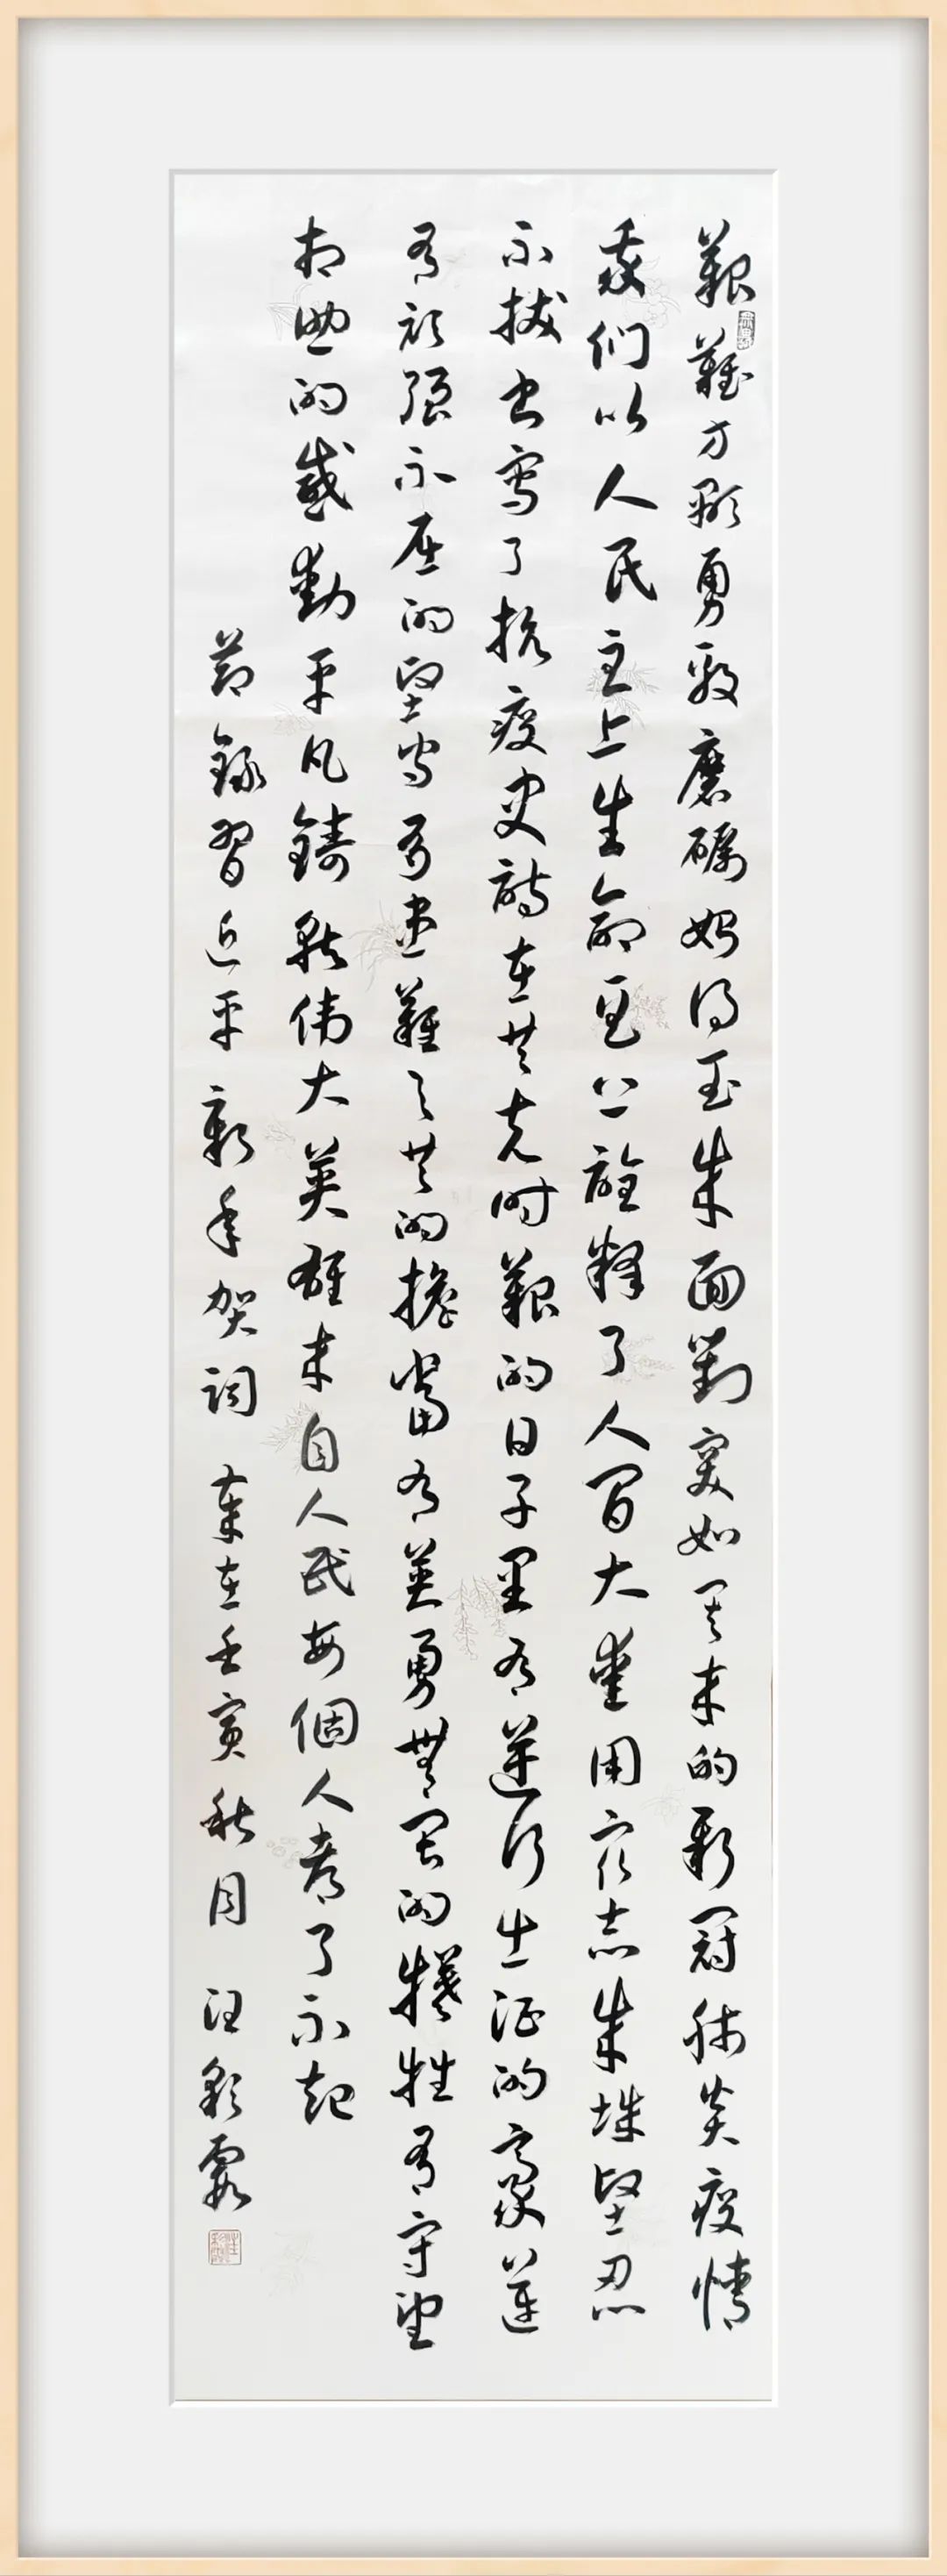 艱難方顯勇毅磨礪始得玉成面對突如其来的新冠肺炎疫情
我们以人民至上生命至上詮釋了人間大愛用众志成城堅忍
不拔書寫了抗疫史詩在共克时艱的日子里有逆行出征的豪邁
有頑強不屈的堅守有患難与共的擔當有英勇無畏的犧牲有守望
相助的感動平凡鑄就伟大英雄来自人民每個人都了不起
節錄習近平新年賀詞 歲在壬寅秋月 汪彩霞